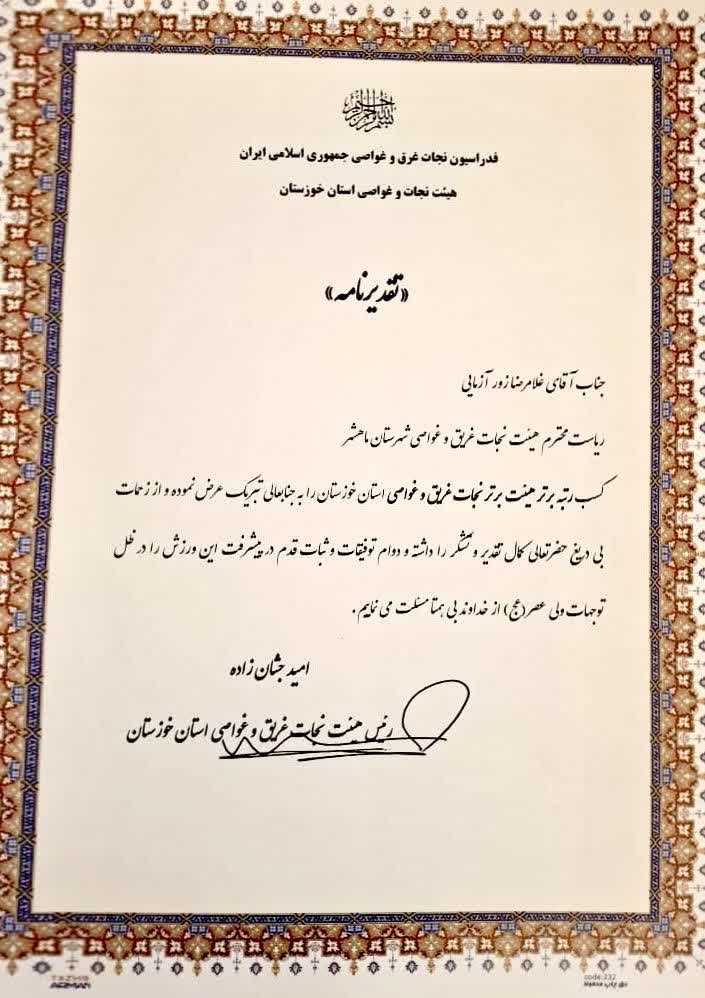 بسم الله الرحمن الرحیم
فدراسیون نجات غرق و غواصی جمهوری اسلامی ایران
هیئت نجات و غواصی استان خوزستان
«تقدیرنامه»
جناب آقای غلامرضا زور آزمایی
ریاست محترم هیئت نجات غریق و غواصی شهرستان ماهشهر
کسب رتبه برتر هیئت برتر نجات غریق و غواصی استان خوزستان را به جنابعالی تبریک عرض نموده و از زحمات
بی دریغ حضرتعالی کمال تقدیر و تشکر را داشته و دوام توفیقات و ثبات قدم در پیشرفت این ورزش را در ظل
توجهات ولی عصر(عج) از خداوند بی همتا مسئلت می نماییم.
امید جشان زاده
رئیس هیئت نجات غریق و غواصی استان خوزستان
code:332
حق چاپ محفوظ